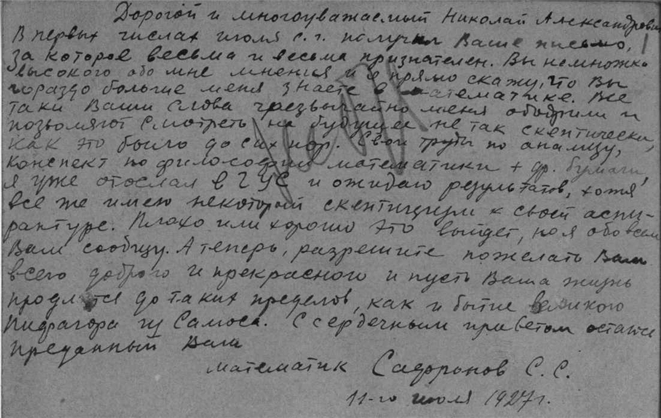 Дорогой и многоуважаемый Николай Александрович!
В первых числах июля с.г. получил Ваше письмо,
за которое весьма и весьма признателен. Вы немножко
высокого обо мне мнения и я прямо скажу, что Вы
гораздо больше меня знаете в математике. Все
таки Ваши слова чрезвычайно меня ободрили и
позволяют смотреть на будущее не так скептически,
как это было до сих пор. Свои труды по анализу,
конспект по философии математики + др. бумаги,
я уже отослал в ГУС и ожидаю результатов, хотя
все же имею некоторый скептицизм к своей аспи-
рантуре. Плохо или хорошо это выйдет, но я обо всем
Вам сообщу. А теперь, разрешите пожелать Вам
всего доброго и прекрасного и пусть Ваша жизнь
продлится до таких пределов, как и бытие великого
Пифагора из Самоса. С сердечным приветом остаюсь
преданный Вам
математик Сафронов С.С.
11-го июля 1927 г.